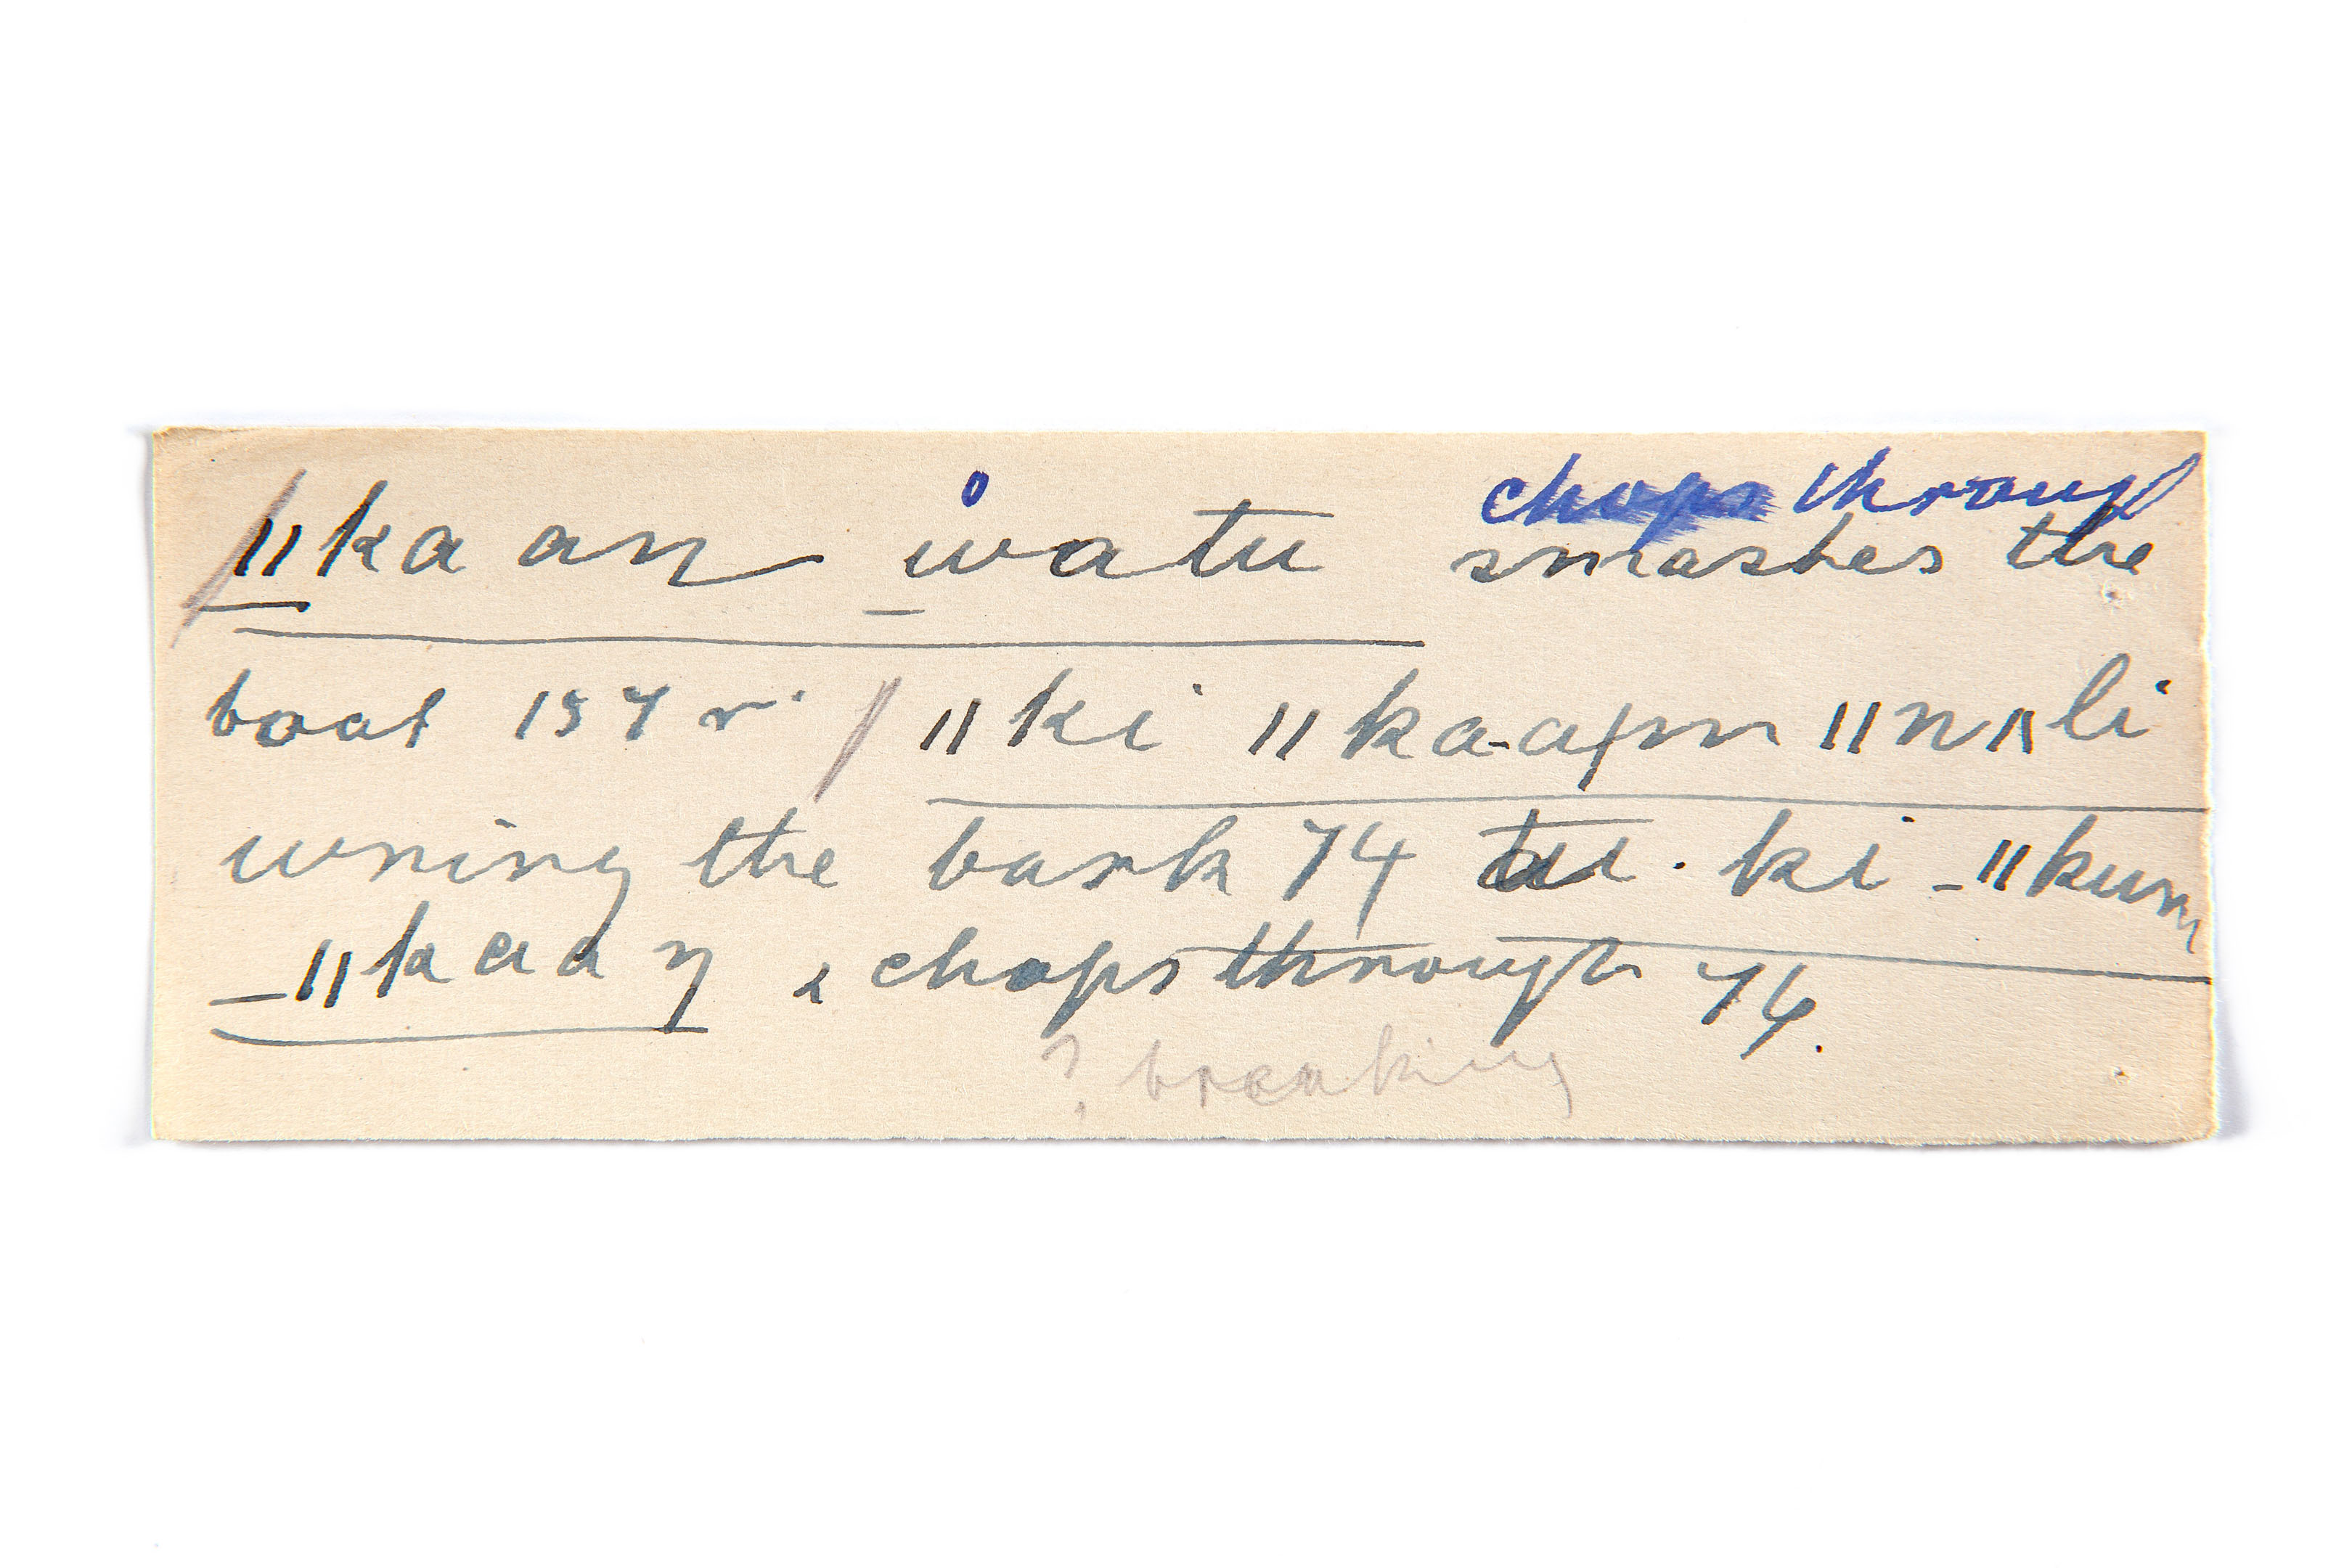 chops through
ǁka an watu smashes the
boat 157 r. / ǁki ǁka-apm ǁnǁli
wning the bark 74 tu. ki-ǁkum
-ǁkaaŋ, chops through 74.
? breaking